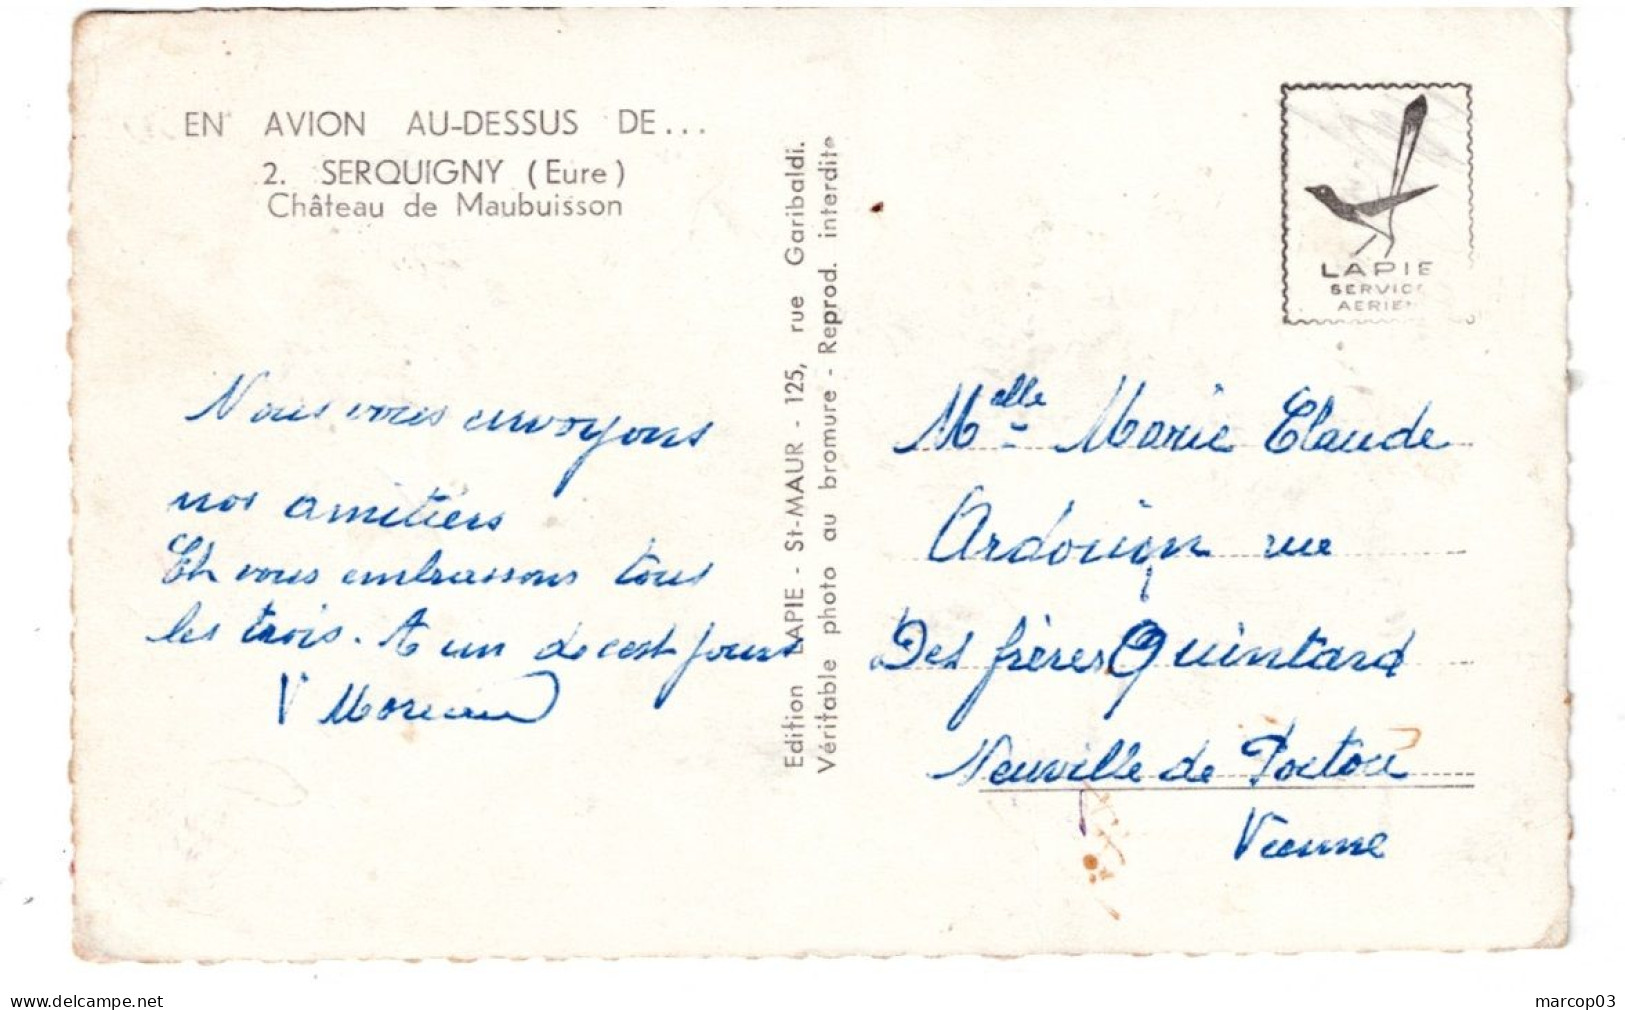 EN AVION AU-DESSUS DE...
2. SERQUIGNY (Eure)
Château de Maubuisson
Nous vous envoyons
nos amitiers
Et vous embrassons tous
les trois. A un de cest jours
V Moreau
Edition LAPIE - St-MAUR - 125, rue Garibaldi.
Véritable photo au bromure - Reprod. interdite
LAPIE
SERVICE
AERIEN
Melle Marie Claude
Ardouin rue
Des frères Quintard
Neuville de Poitou
Vienne
marcop03
www.delcampe.net